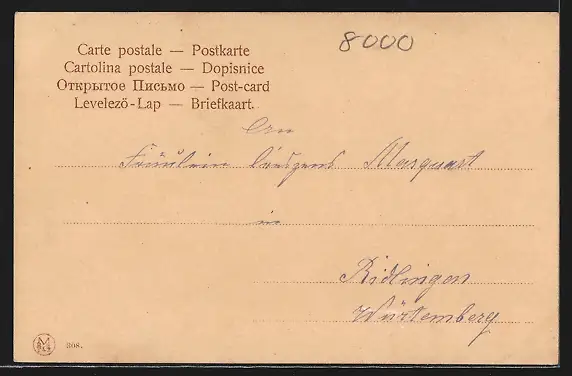 Carte postale — Postkarte
Cartolina postale — Dopisnice
Открытое Письмо — Post-card
Levelező-Lap — Briefkaart.
8000
An
Fräulein Marquart
in
Ridlingen
Würtemberg
308.